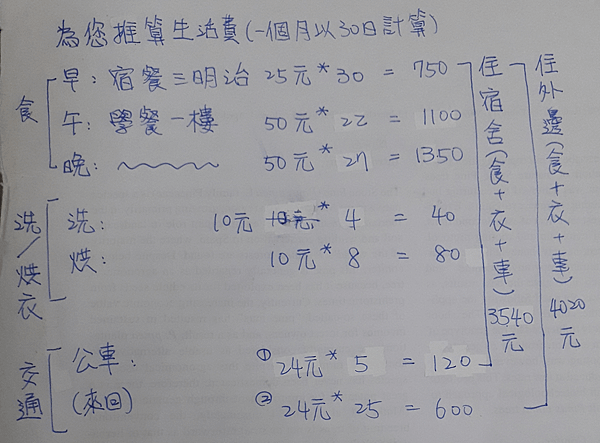 為您推算生活費(一個月以30日計算)
食
早: 宿餐三明治 25元*30 = 750
午: 學餐一樓 50元*22 = 1100
晚: 50元*27 = 1350
洗/烘衣
洗: 10元 * 4 = 40
烘: 10元*8 = 80
交通
公車: ①24元*5 = 120
(來回) ②24元*25 = 600
住宿舍(食+衣+車) 3540元
住外邊(食+衣+車) 4020元